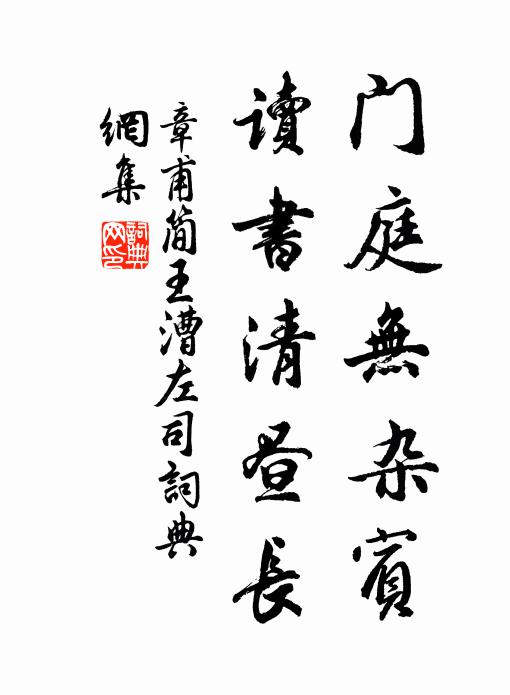 门庭無杂賓
读書清昼長
章甫简王漕左司詞典
網集
詞典网印